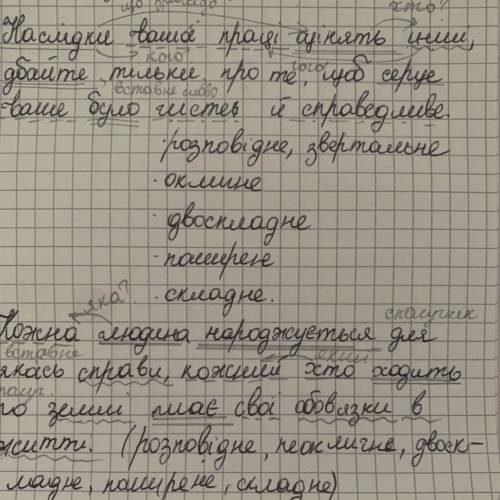 що
хто?
Наслідки вашої праці оцінять інші,
кого
чого
дбайте тильки про те, щоб серце
вставне слово
ваше було чисте й справедливе.
·розповідне, звертальне
·оклине
·двоскладне
·поширене
·складне.
яка?
сполучник
Кожна людина народжується для
вставне
який
якась справи, кожний хто ходить
го землі має свої обов'язки в
житті. (розповідне, неокличне, двоск-
ладне, поширене, складне)